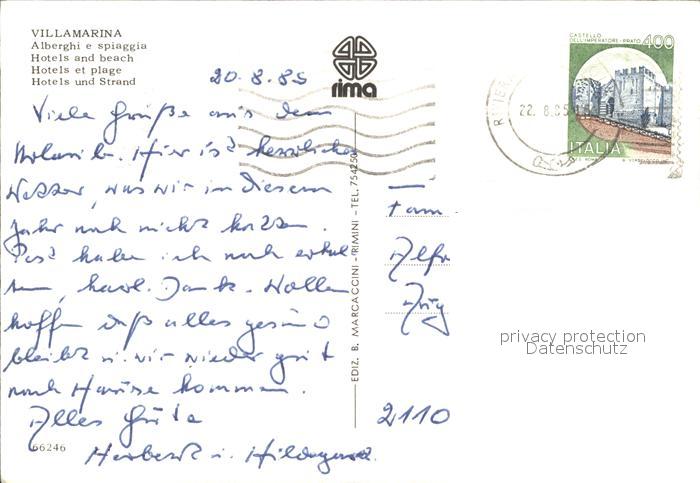 VILLAMARINA
Alberghi e spiaggia
Hotels and beach
Hotels et plage
Hotels und Strand
rima
CASTELLO
DELL'IMPERATORE-PRATO 400
ITALIA
22.8.85
20.8.85
Viele Grüße aus dem
Urlaub. Hier ist herrliches
Wetter, was wir in diesem
Jahr noch nicht hatten.
Post habe ich noch erhal
ten, herzl. Dank. Wollen
hoffen daß alles gesund
bleibt u. wir wieder gut
nach Hause kommen.
Alles Gute
Herbert u. Hildegard.
66246
EDIZ. B. MARCACCINI - RIMINI - TEL. 754250
Fam
Alfr
2110
privacy protection
Datenschutz